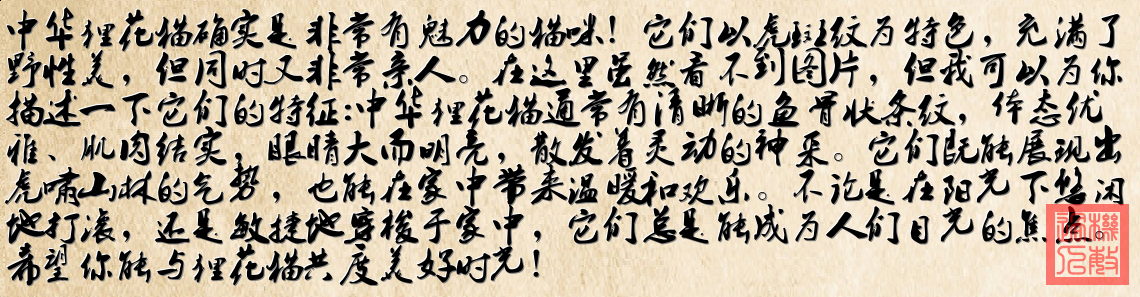 中华狸花猫确实是非常有魅力的猫咪！它们以虎斑纹为特色，充满了
野性美，但同时又非常亲人。在这里虽然看不到图片，但我可以为你
描述一下它们的特征:中华狸花猫通常有清晰的鱼骨状条纹，体态优
雅、肌肉结实，眼睛大而明亮，散发着灵动的神采。它们既能展现出
虎啸山林的气势，也能在家中带来温暖和欢乐。不论是在阳光下悠闲
地打滚，还是敏捷地穿梭于家中，它们总是能成为人们目光的焦点。
希望你能与狸花猫共度美好时光！